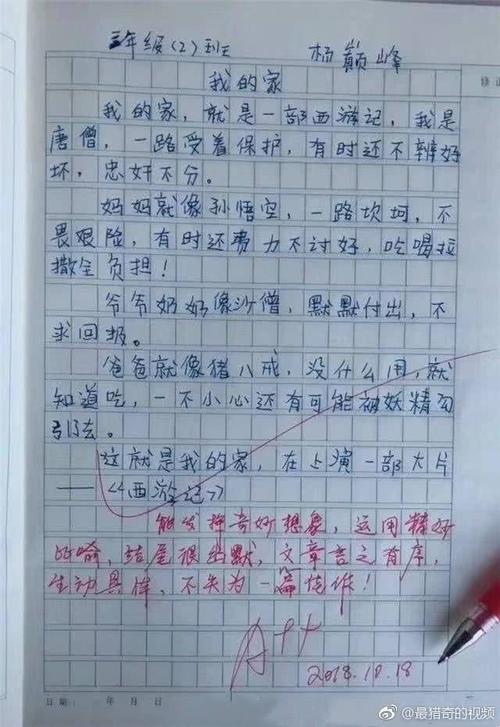 三年级(2)班 杨巅峰
我的家
我的家，就是一部西游记，我是
唐僧，一路受着保护，有时还不辨好
坏，忠奸不分。
妈妈就像孙悟空，一路坎坷，不
畏艰险，有时还费力不讨好，吃喝拉
撒全负担！
爷爷奶奶像沙僧，默默付出，不
求回报。
爸爸就像猪八戒，没什么用，就
知道吃，一不小心还有可能被妖精勾
引去。
这就是我的家，在上演一部大片
——《西游记》
能发挥奇妙想象，运用精妙
比喻，结尾很幽默，文章言之有序，
生动具体，不失为一篇佳作！
A++
2018.10.18
日期： 年 月 日
@最猎奇的视频